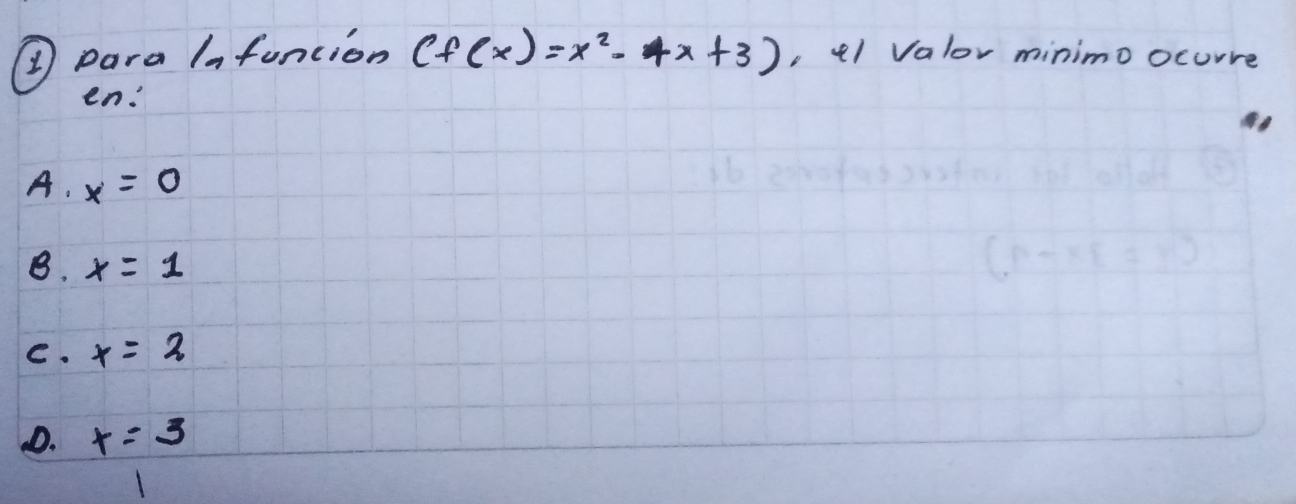 ① para la función (f(x)=x²-4x+3), el valor minimo ocurre
en:
A. x = 0
B. x = 1
C. x = 2
D. x = 3